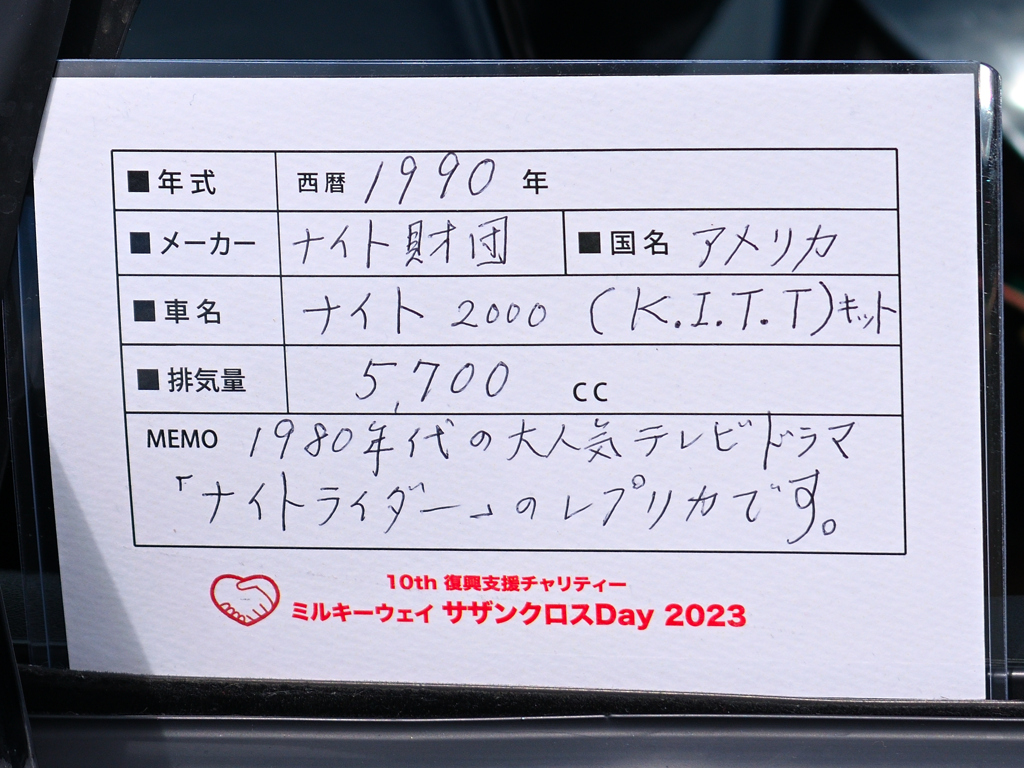 ■年式 西暦 1990 年
■メーカー ナイト財団 ■国名 アメリカ
■車名 ナイト 2000 (K.I.T.T)キット
■排気量 5,700 cc
MEMO 1980年代の大人気テレビドラマ
「ナイトライダー」のレプリカです。
10th 復興支援チャリティー
ミルキーウェイ サザンクロスDay 2023